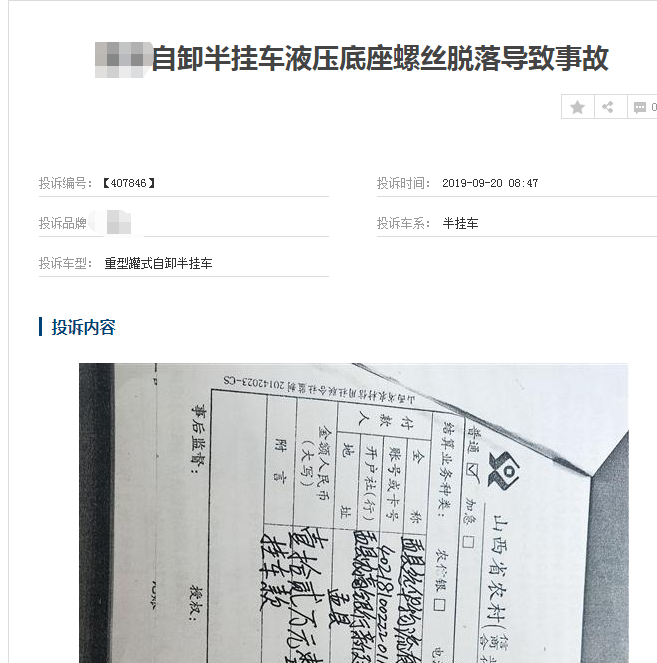 自卸半挂车液压底座螺丝脱落导致事故
0
投诉编号：【407846】
投诉时间： 2019-09-20 08:47
投诉品牌
投诉车系： 半挂车
投诉车型： 重型罐式自卸半挂车
投诉内容
山西省农村(信
商
合
普通 ☑ 加急 □
结算业务种类： 农信银 □ 电
付款人
全称
账号或卡号
开户社(行)
地址
盂县
金额人民币
(大写)
壹拾贰万元整
附言
挂车款
事后监督：
授权：
山西省农村信用社联合社监制 20142023-CS